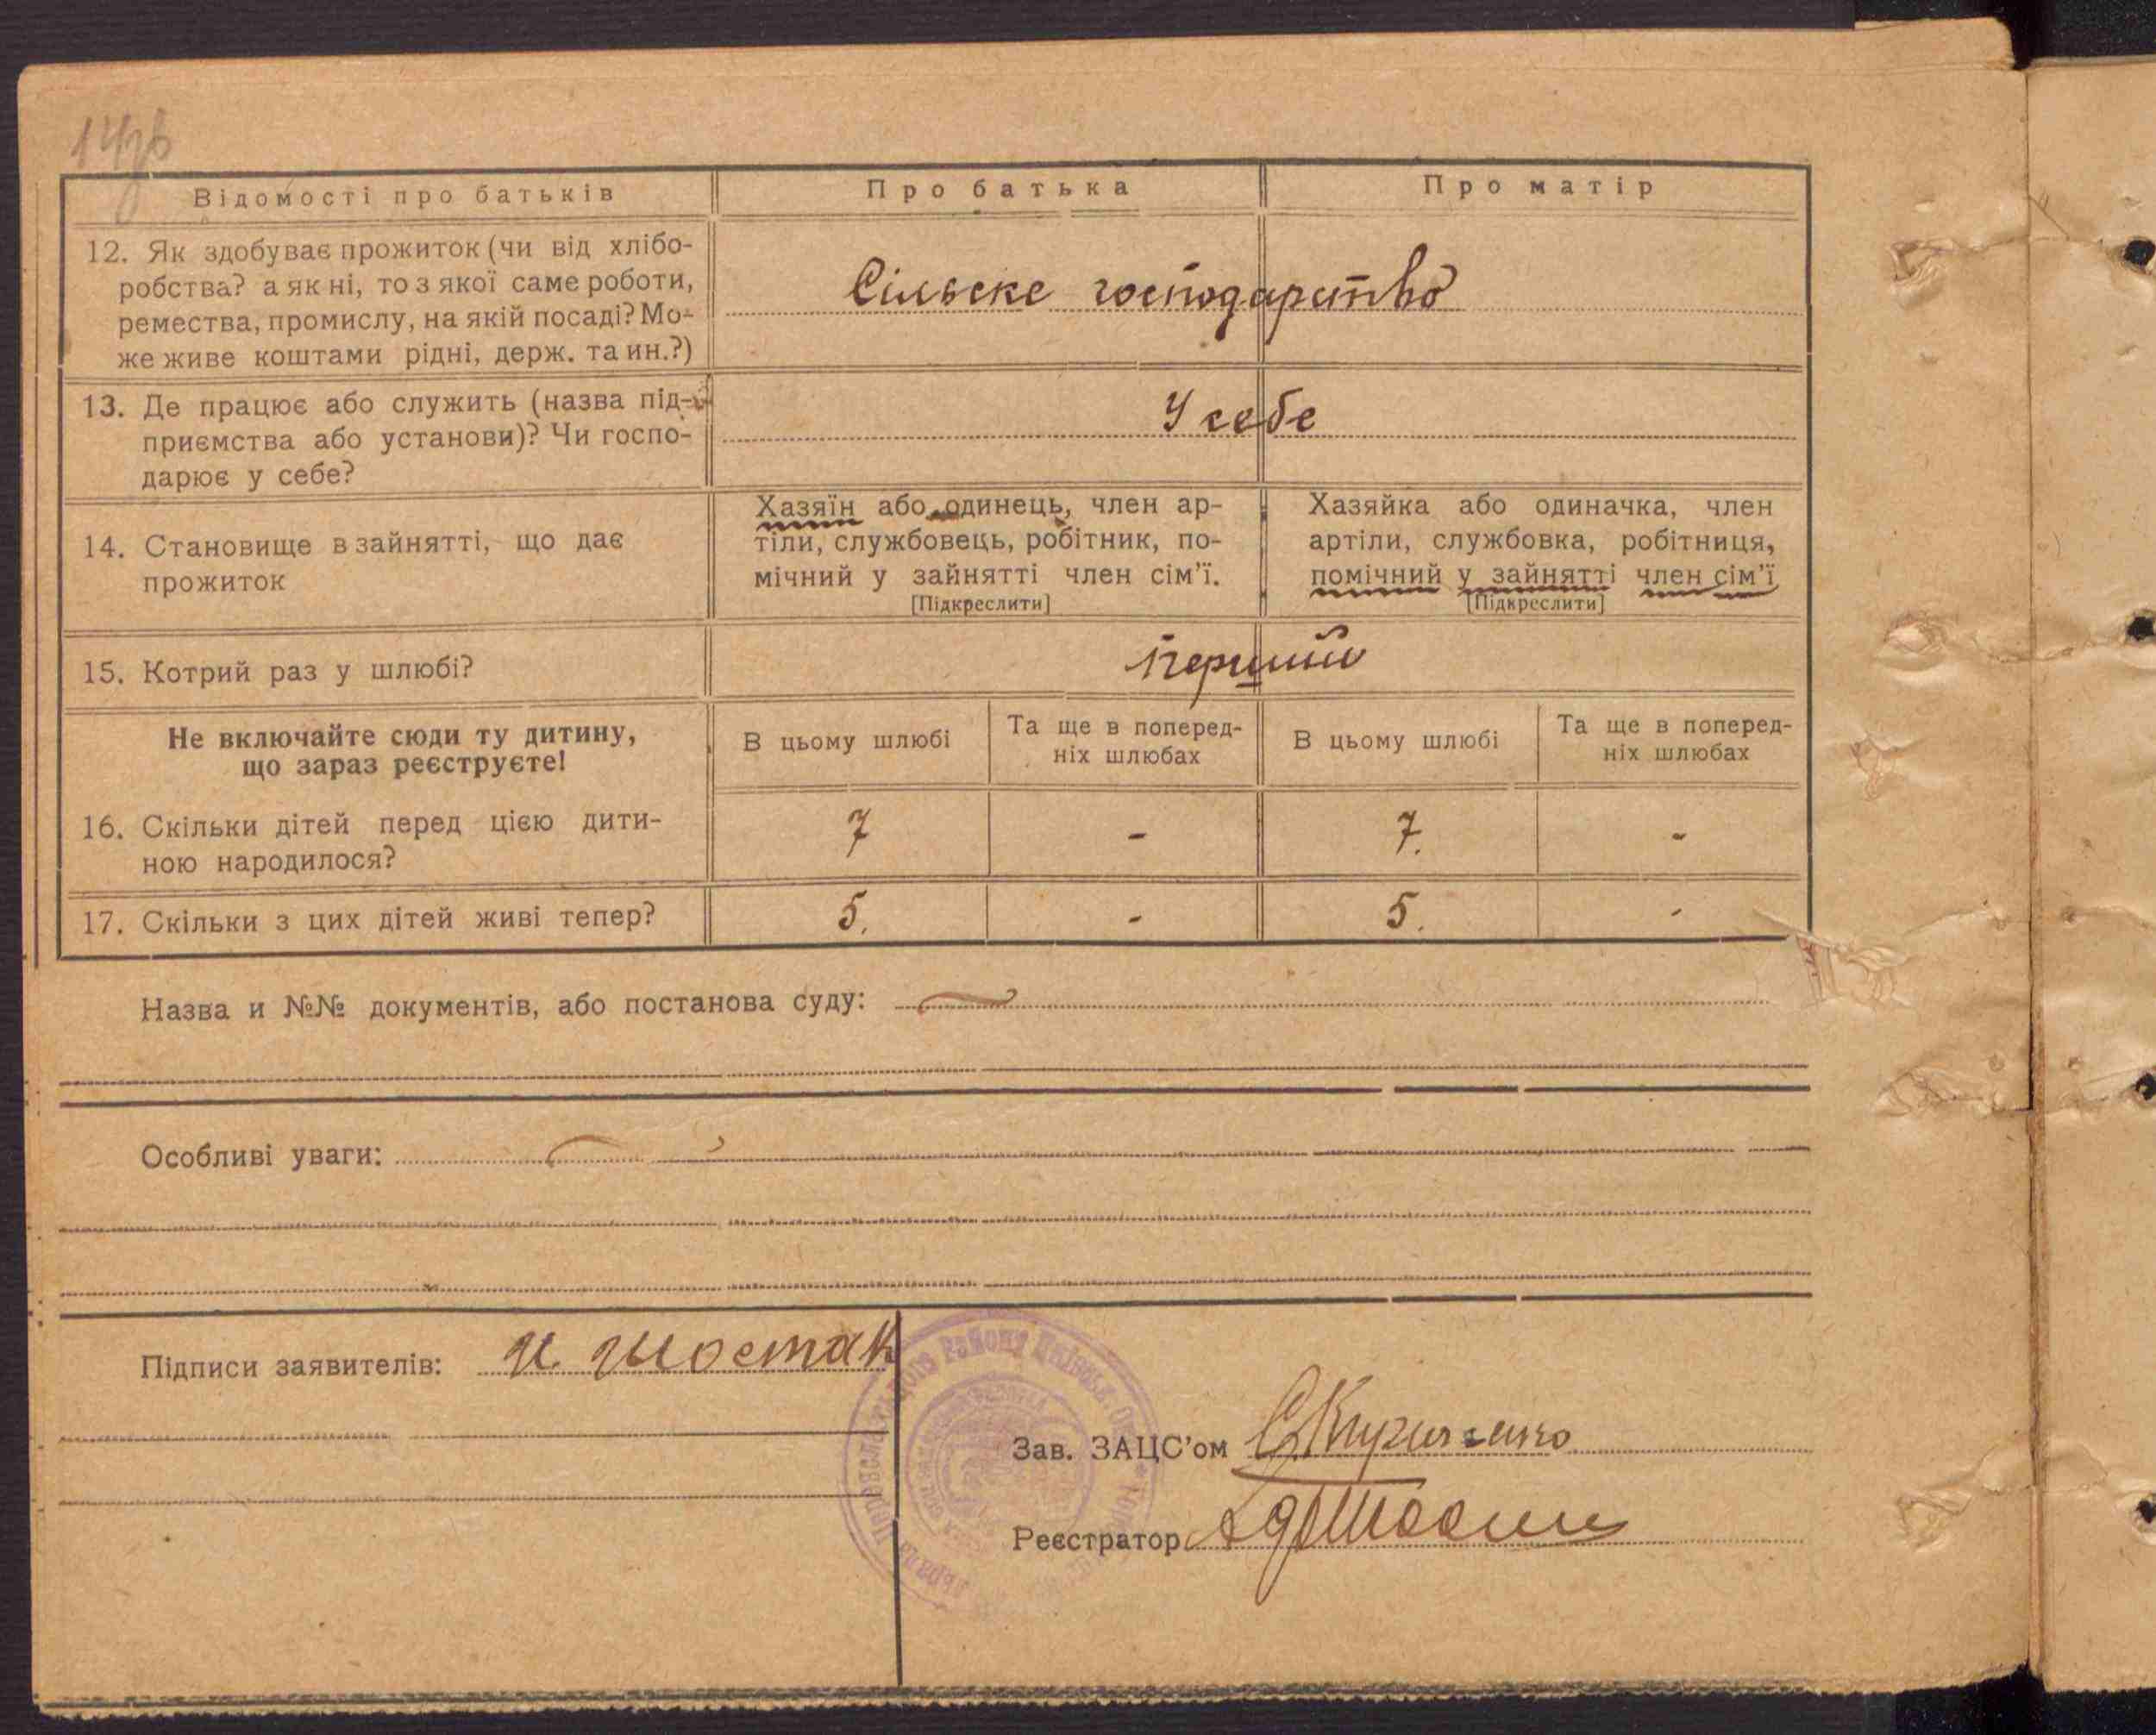 Відомості про батьків
Про батька
Про матір
12. Як здобуває прожиток (чи від хлібо-
робства? а як ні, то з якої саме роботи,
ремества, промислу, на якій посаді? Мо-
же живе коштами рідні, держ. та ин.?)
Сільске господарство
13. Де працює або служить (назва під-
приємства або установи)? Чи госпо-
дарює у себе?
У себе
14. Становище в зайнятті, що дає
прожиток
Хазяїн або одинець, член ар-
тіли, службовець, робітник, по-
мічний у зайнятті член сім'ї.
[Підкреслити]
Хазяйка або одиначка, член
артіли, службовка, робітниця,
помічний у зайнятті член сім'ї
[Підкреслити]
15. Котрий раз у шлюбі?
перший
Не включайте сюди ту дитину,
що зараз реєструєте!
В цьому шлюбі
Та ще в поперед-
ніх шлюбах
В цьому шлюбі
Та ще в поперед-
ніх шлюбах
16. Скільки дітей перед цією дити-
ною народилося?
7 - 7. -
17. Скільки з цих дітей живі тепер?
5. - 5. -
Назва и №№ документів, або постанова суду:
Особливі уваги:
Підписи заявителів: И. Шостак
Зав. ЗАЦС'ом
Реєстратор